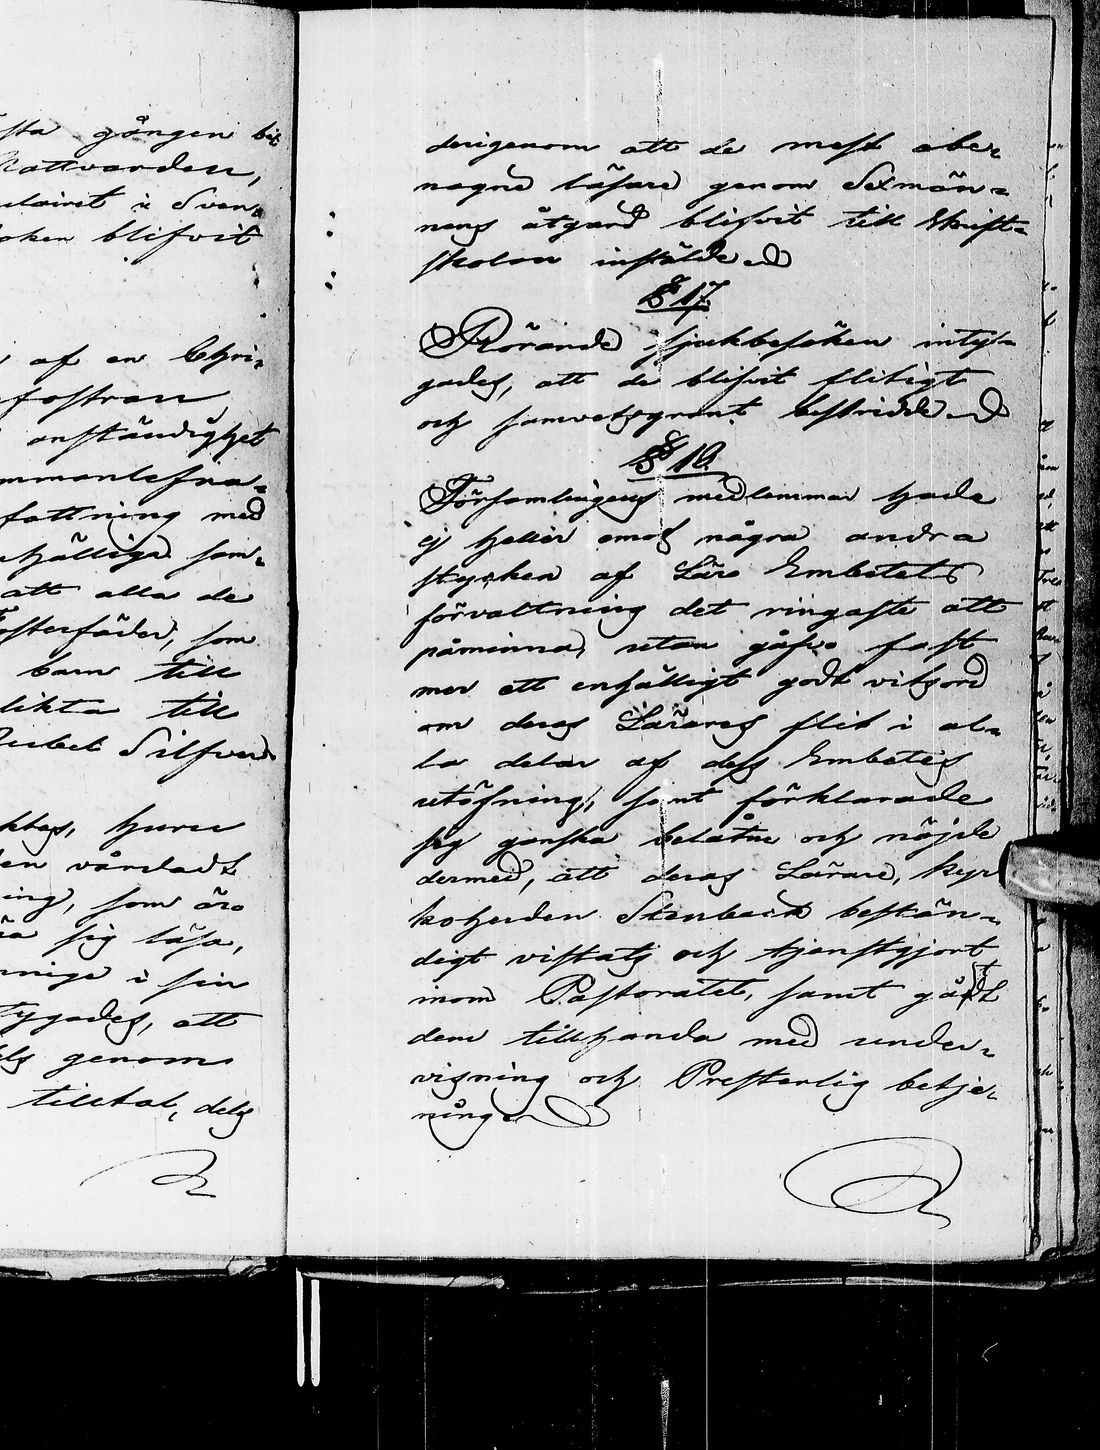 sta gången bit
Nattvarden,
ulairet i Sven
oken blifvit
af en Chri-
fostran
anständighet
mmantesna-
fattning med
hällige sam-
att alla de
osterfäder, som
barn till
likta till
Silfver
ktes, huru
en vårdadt
ing, som äro
sig läsa,
nnige i sin
tygades, att
genom
tilltal, dels
derigenom att de mest obe-
nägne läsare genom Sexmän-
nens åtgärd blifvit till Skrift-
skolan instälde
§ 17.
Rörande sjukbesöken inty-
gades, att de blifvit flitigt
och samvetsgrant bestridde
§ 18.
Församlingens medlemmar hade
ej heller emot några andra
stycken af Läro Embetets
förvaltning det ringaste att
påminna, utan gåfvo fast
mer ett enhälligt godt vitsord
om deras Lärares flit i al-
la delar af dess Embetes
utöfning, samt förklarade
sig ganska belåtne och nöjde
dermed, att deras Lärare, kyr
koherden Stenbeck bestän-
digt vistats och tjenstgjort
inom Pastoratet, samt gådt
dem tillhanda med under-
visning och Presterlig betje-
ning